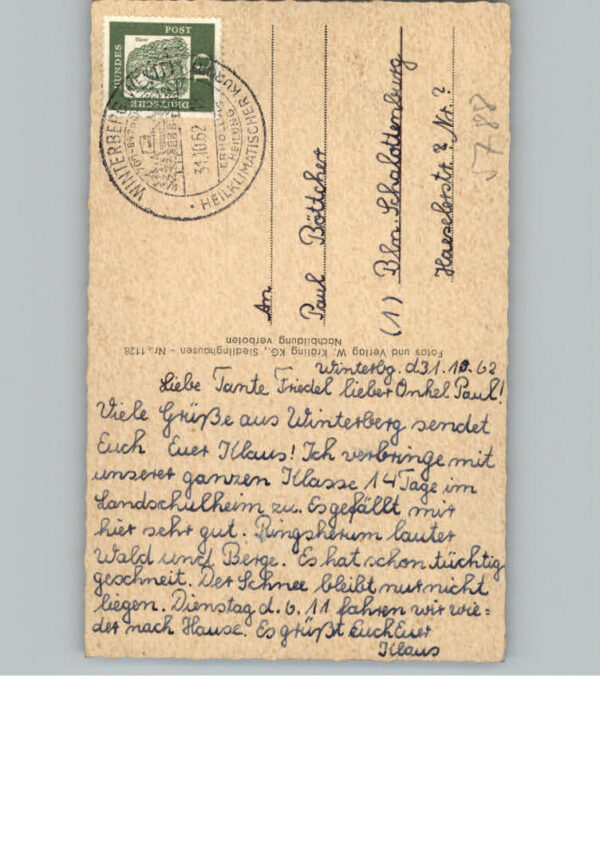 DEUTSCHE
BUNDES
POST
Dürer
10
WINTERBERG
31.10.62
ERHOLUNG
HEILUNG
HEILKLIMATISCHER KURORT
An
Paul Böttcher
(1) Bln. Schalottenburg
Haeselerstr. ? Nr. ?
5788
Fotos und Verlag W. Kräling KG., Siedlinghausen - Nr. 1128
Nachbildung verboten
Winterbg. d 31.10.62
Liebe Tante Friedel lieber Onkel Paul!
Viele Grüße aus Winterberg sendet
Euch Euer Klaus! Ich verbringe mit
unserer ganzen Klasse 14 Tage im
Landschulheim zu. Es gefällt mir
hier sehr gut. Ringsherum lauter
Wald und Berge. Es hat schon tüchtig
geschneit. Der Schnee bleibt nur nicht
liegen. Dienstag d. 6. 11 fahren wir wie=
der nach Hause. Es grüßt Euch Euer
Klaus